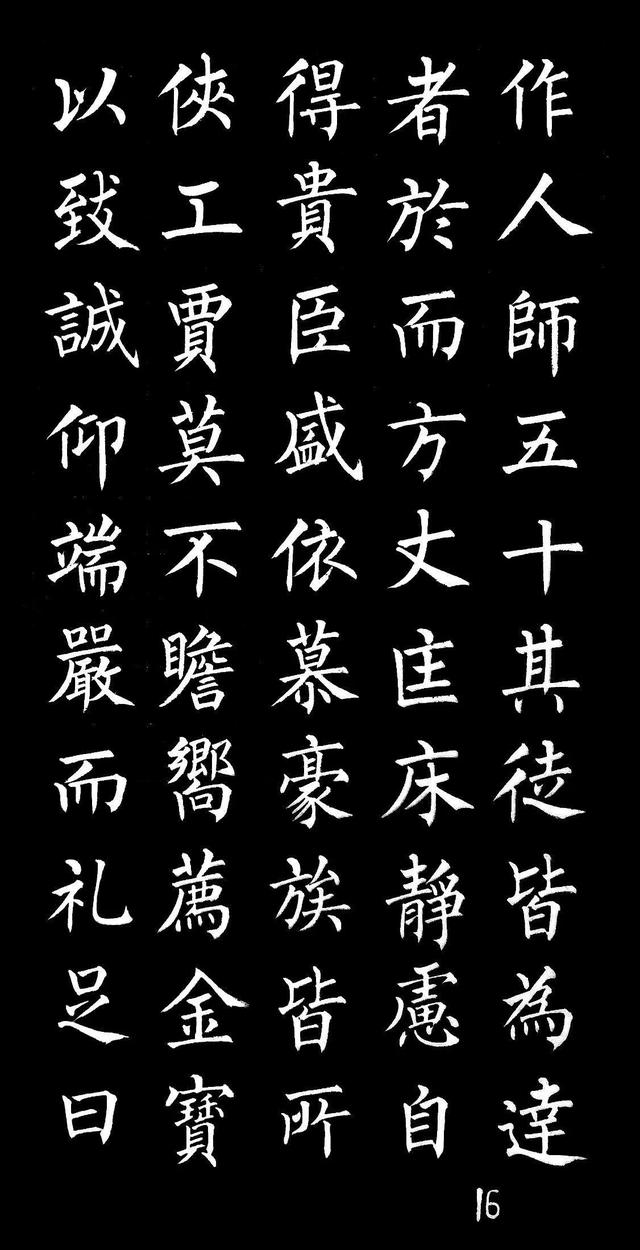 作人師五十其徒皆為達
者於而方丈匡床靜慮自
得貴臣盛依慕豪族皆所
俠工賈莫不瞻嚮薦金寶
以致誠仰端嚴而礼足日
16